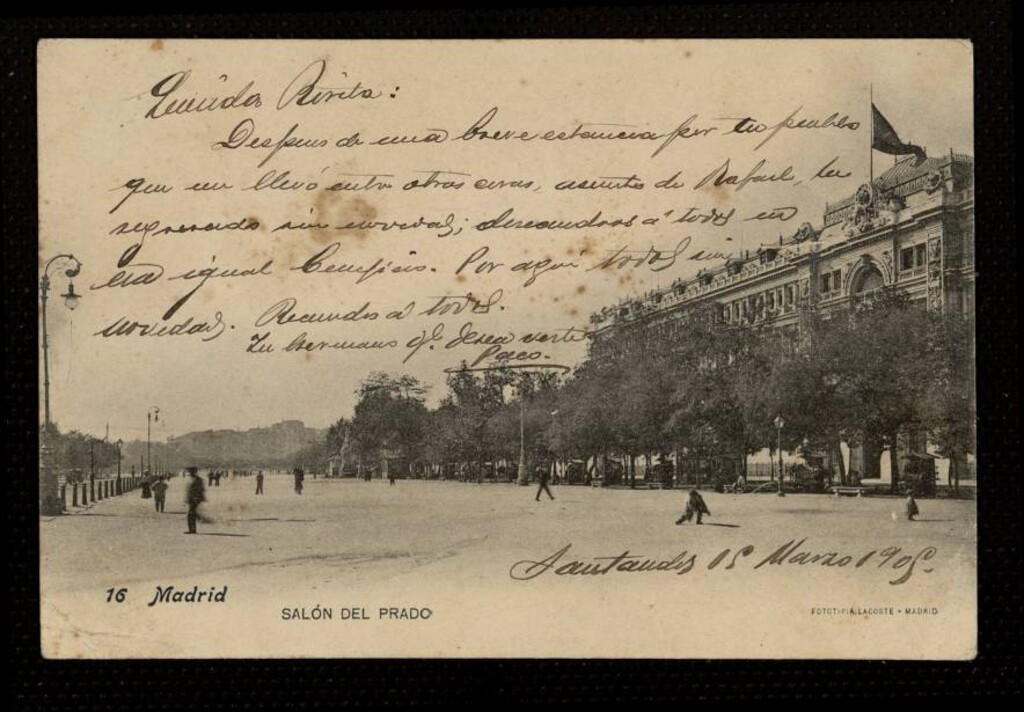 Querida Rosita:
Despues de una breve estancia por tu pueblo
que me llevó entre otras cosas, asuntos de Rafael, he
regresado sin novedad; deseandoos á todos
igual beneficio. Por aquí todos sin
novedad. Recuerdos á todos.
Tu hermano q.e desea verte
Paco.
Santander 15 Marzo 1905.
16 Madrid
SALÓN DEL PRADO
FOTOTIPIA LACOSTE - MADRID